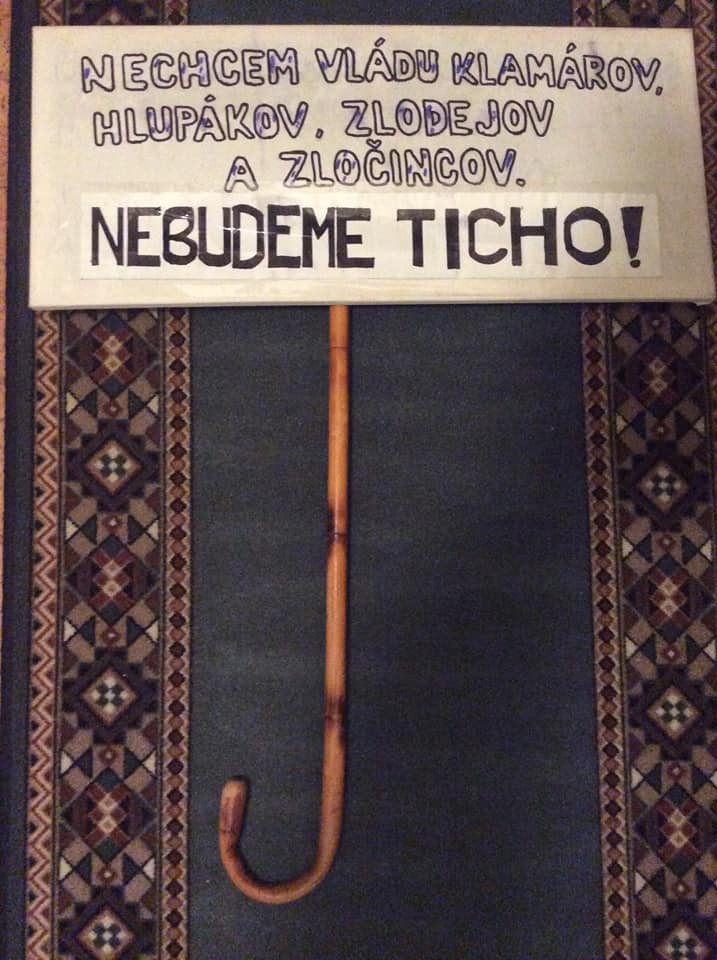 NECHCEM VLÁDU KLAMÁROV,
HLUPÁKOV, ZLODEJOV
A ZLOČINCOV.
NEBUDEME TICHO!